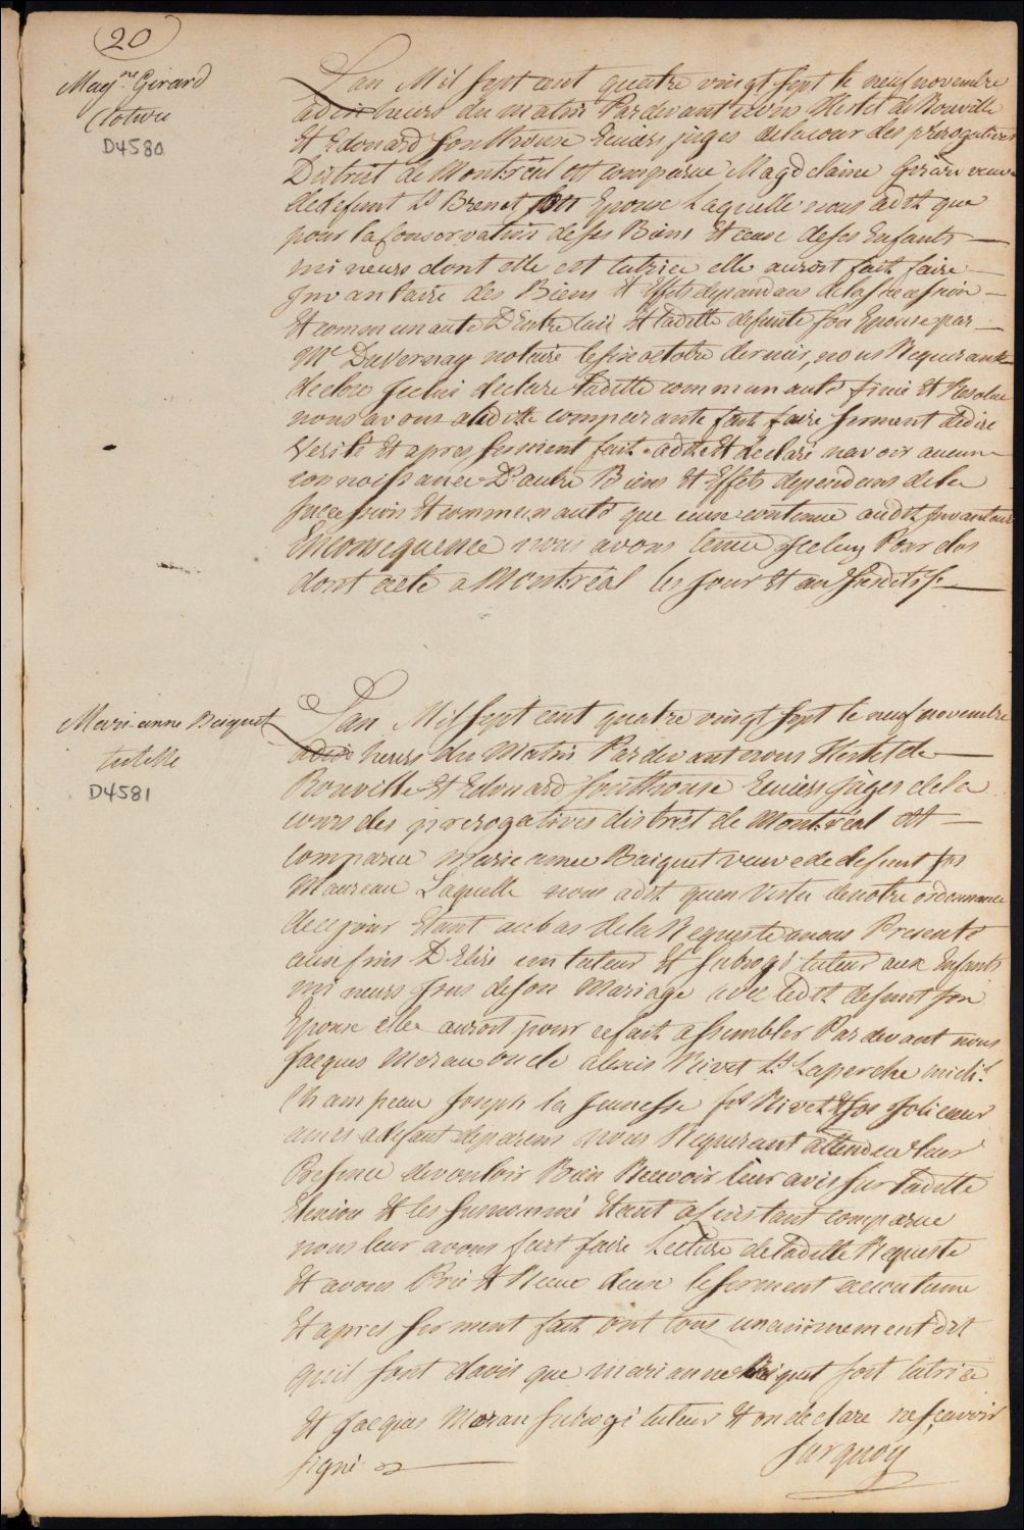 20
Magne Girard
Cloture
D4580
L'an Mil sept cent quatre vingt sept le neuf novembre
a dix heures du matin Pardevant nous Hertel de Rouville
Et Edouard Southouse Ecuiers juges de la cour des prerogatives
District de Montréal est comparue Magdelaine Girard veuve
de defunt Ls Brenet son Epoux Laquelle nous a dit que
pour la Conservation de ses Biens Et ceux de ses Enfants
mineurs dont elle est tutrice elle auroit fait faire
Invantaire des Biens Et Effets dependans de la succession
Et communauté D'Entre luie Et ladite defunte son Epouse par
Me DuVernay notaire le six octobre dernier, nous Requerant
de clore Icelui declare ladite communauté finie Et Resolue
nous avons a ladite comparante fait faire serment de dire
Verité Et apres serment fait a dit Et declaré n'avoir aucune
connoissance D'autre Biens Et Effets dependans de la
succession Et communauté que ceux contenue audit Invantaire
En Consequence nous avons tenu Iceluy Pour clos
dont acte a Montréal les jour Et an Susdits
Marianne Baiquet
tutelle
D4581
L'an Mil sept cent quatre vingt sept le neuf novembre
a dix heures du Matin Par devant nous Hertel de
Rouville Et Edouard Southouse Ecuiers Juges de la
cour des prerogatives district de Montréal est
Comparue marie anne Baiquet veuve de defunt fs
Maureau Laquelle nous a dit qu'en Vertu de notre ordonnance
de ce jour Etant au bas de la Requeste a nous Presenté
aux fins D'Elire un tuteur Et Subrogé tuteur aux Enfants
mineurs Issus de son Mariage avec ledit defunt son
Epoux elle auroit pour ce fait assembler Pardevant nous
Jacques Morau oncle alexis Rivet Ls Laperche mich:l
Champeau Joseph la Jeunesse fs Rivet Et Jos Jolicoeur
amis a defaut de parens nous Requerant attendu leur
Presence de vouloir Bien Recevoir leur avis sur ladite
Election Et les surnommé Etant a l'instant comparue
nous leur avons fait faire Lecture de ladite Requeste
Et avons Pris Et Recue deux le serment accoutumé
Et apres serment fait ont tous unanimement dit
quil sont d'avis que marianne Baiquet soit tutrice
Et Jacques Moran subrogé tuteur Et on declare ne sçavoir
signé